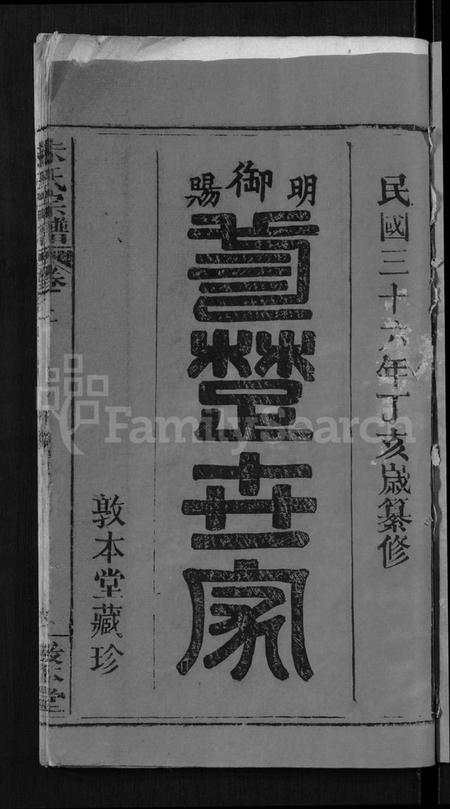 民國三十六年丁亥歲纂修
明御賜
楚世家
敦本堂藏珍
朱氏宗譜 卷
敦本堂
FamilySearch